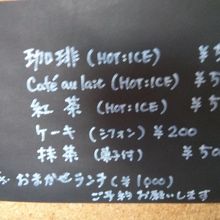 珈琲 (HOT:ICE) ¥
Café au lait (HOT:ICE) ¥
紅茶 (HOT:ICE) ¥
ケーキ (シフォン) ¥200
抹茶 (菓子付) ¥50
おまかせランチ (¥1000)
ご予約お願いします